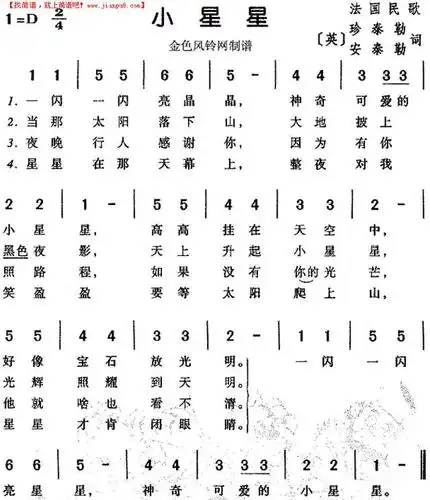 【找简谱，就上简谱吧！www.jianpu8.com】
1=D 2/4
小星星
法国民歌
〔英〕珍泰勒 安泰勒 词
金色风铃网制谱
1 1 | 5 5 | 6 6 | 5 - | 4 4 | 3 33 |
1. 一闪 一闪 亮晶 晶， 神奇 可爱的
2. 当那 太阳 落下 山， 大地 披上
3. 夜晚 行人 感谢 你， 因为 有你
4. 星星 在那 天幕 上， 整夜 对我
2 2 | 1 - | 5 5 | 4 4 | 3 3 | 2 - |
小星 星， 高高 挂在 天空 中，
黑色夜 影， 天上 升起 小星 星，
照路 程， 如果 没有 你的光 芒，
笑盈 盈， 要等 太阳 爬上 山，
5 5 | 4 4 | 3 33 | 2 - | 1 1 | 5 5 |
好像 宝石 放光 明。 一闪 一闪
光辉 照耀 到天 明。
他就 啥也 看不 清。
星星 才肯 闭眼 睛。
6 6 | 5 - | 4 4 | 3 33 | 2 2 | 1 - ‖
亮星 星， 神奇 可爱的 小星 星。